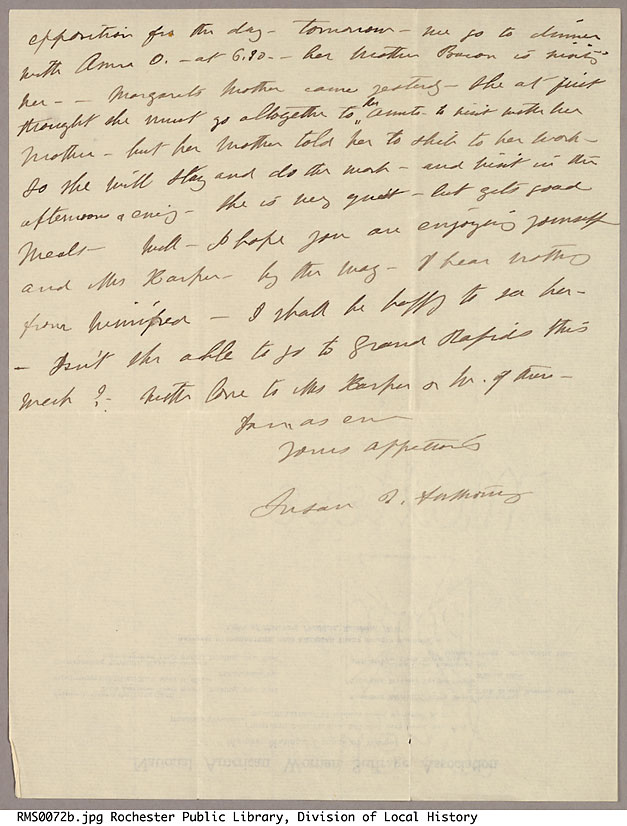 opposition for the day - tomorrow - we go to dinner
with Anna O. - at 6.30 - her mother Bacon is visiting
her - - Margarets Mother came yesterday - She at first
thought she must go altogether to her Aunts - to visit with her
Mother - but her Mother told her to stick to her work -
So she will stay and do the work - and visit in the
afternoons & evenings - She is very quiet - but gets good
Meals - Well - I hope you are enjoying yourself
and Mrs Harper - by the way - I hear nothing
from Winnifred - I shall be happy to see her -
- Isn't she able to go to Grand Rapids this
week ? - With love to Mrs Harper &
I am as ever
Yours affectionately
Susan B. Anthony
National American Woman Suffrage Association
RMS0072b.jpg Rochester Public Library, Division of Local History